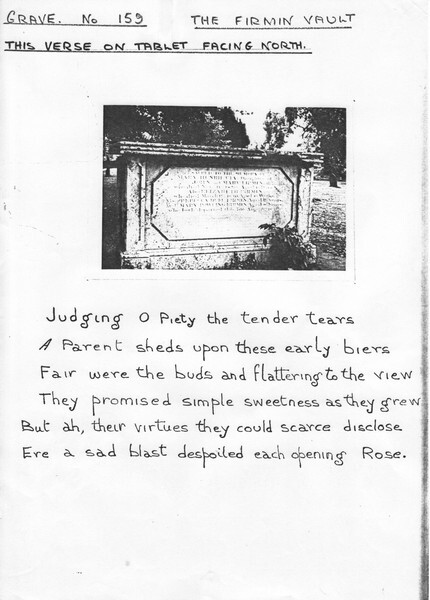 GRAVE. No 159 THE FIRMIN VAULT
THIS VERSE ON TABLET FACING NORTH.
Judging O Piety the tender tears
A Parent sheds upon these early biers
Fair were the buds and flattering to the view
They promised simple sweetness as they grew
But ah, their virtues they could scarce disclose
Ere a sad blast despoiled each opening Rose.